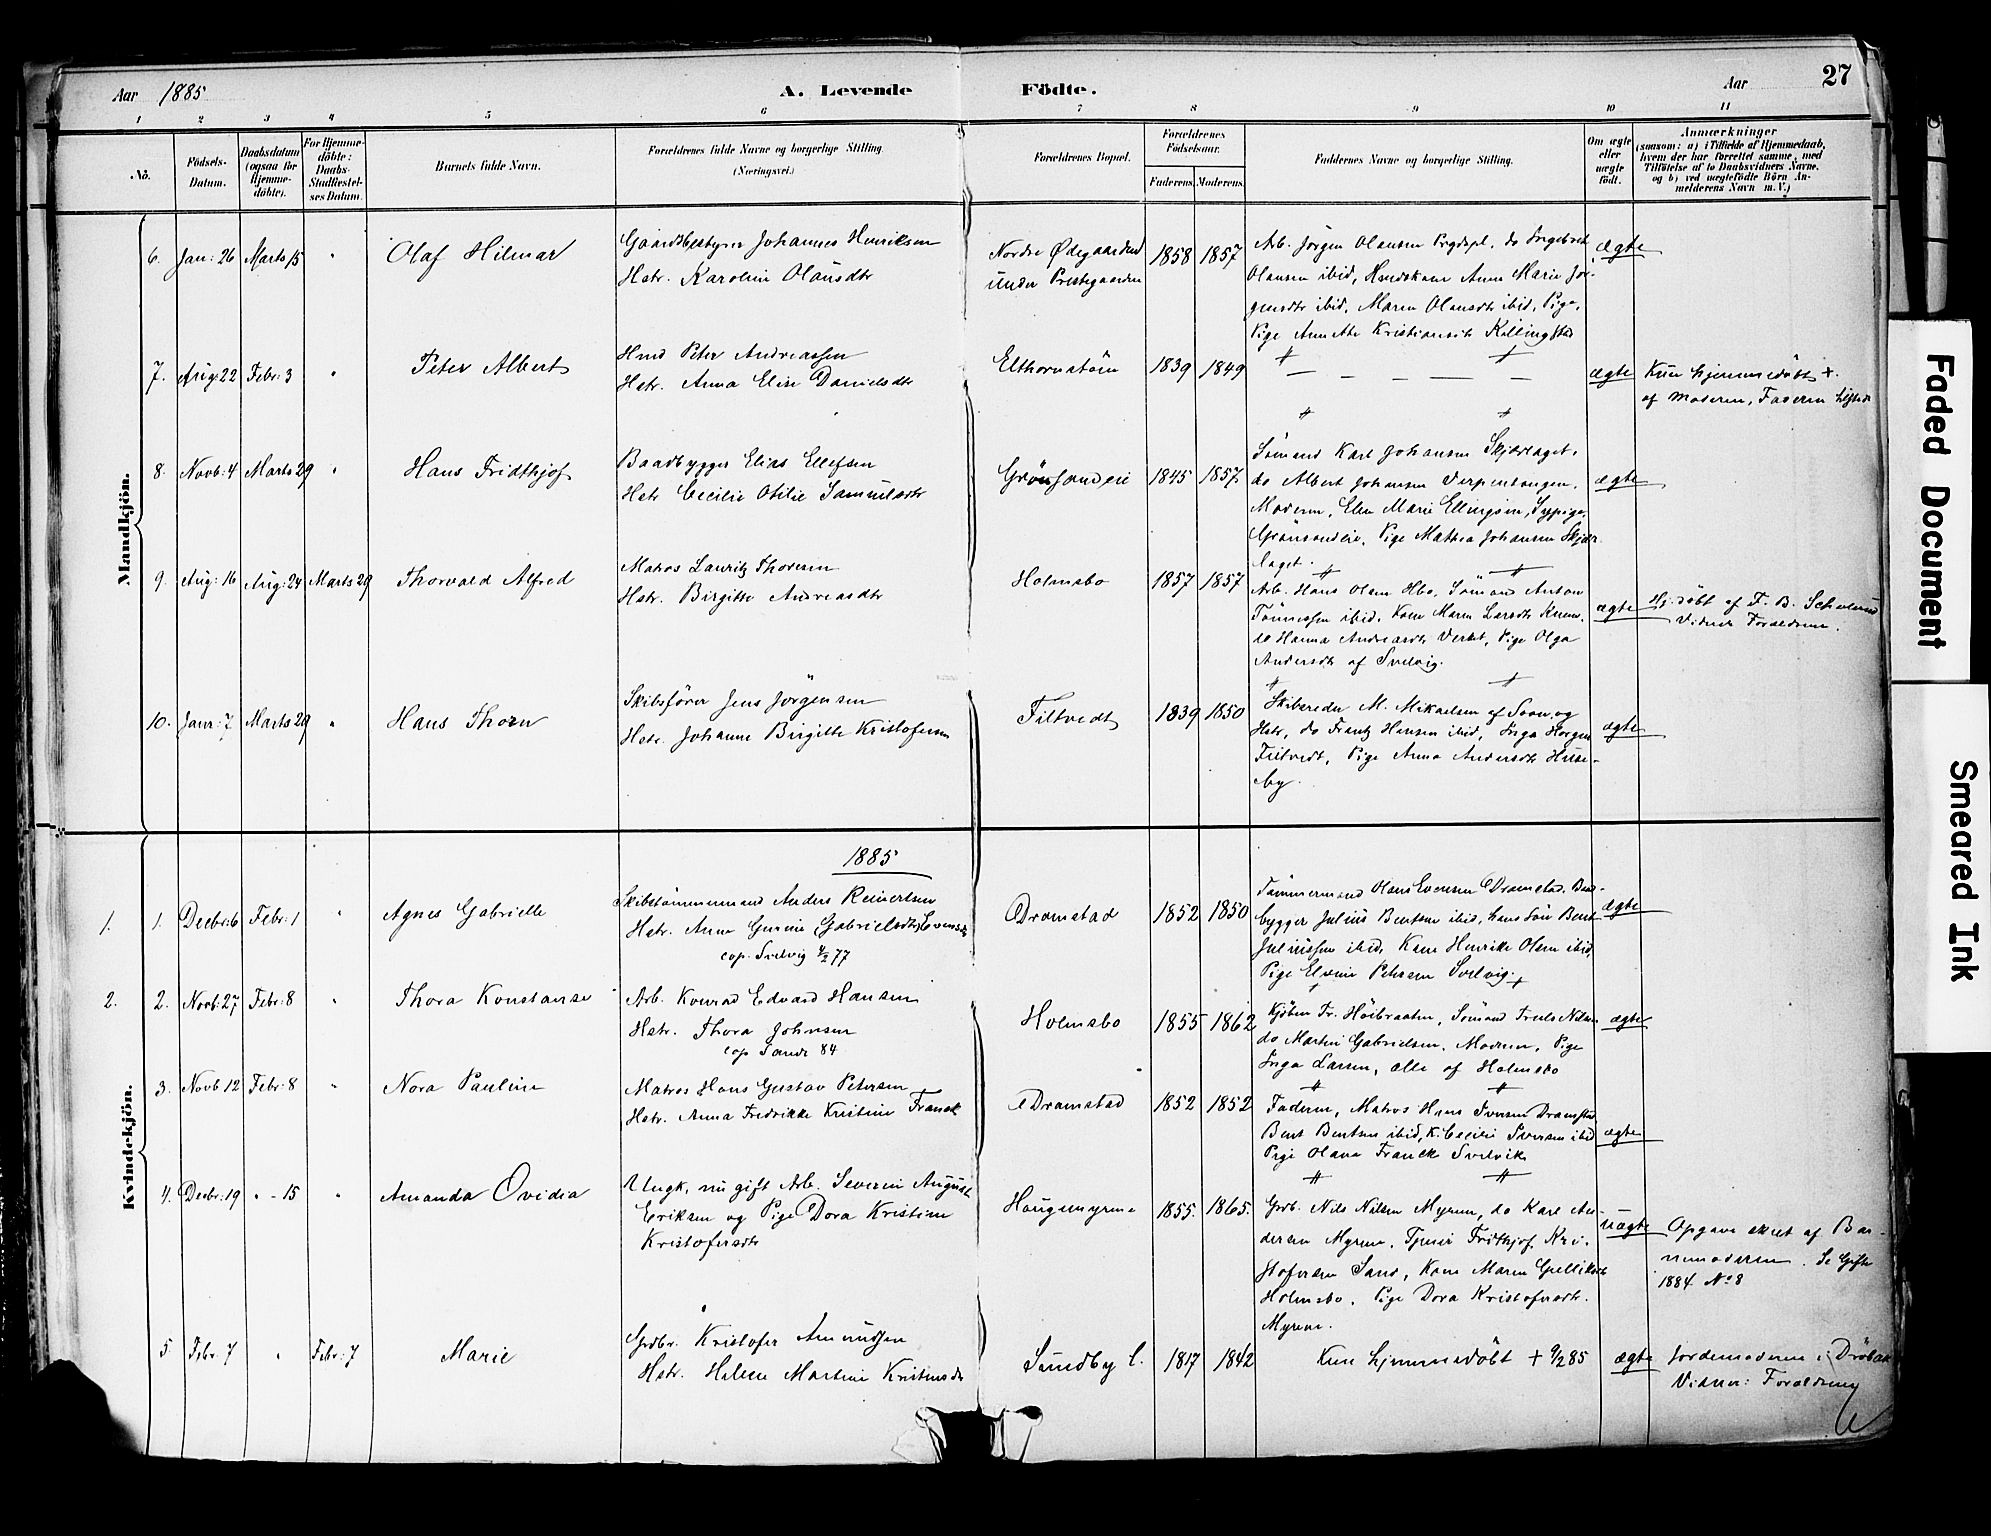 Aar 1885
A. Levende Födte.
Aar
27
1 2 3 4 5 6 7 8 9 10 11
No.
Födsels-
Datum.
Daabsdatum
(ogsaa for
Hjemme-
döbte).
For Hjemme-
döbte:
Daabs-
Stadfæstel-
ses Datum.
Barnets fulde Navn.
Forældrenes fulde Navne og borgerlige Stilling.
(Næringsvei.)
Forældrenes Bopæl.
Forældrenes
Födselsaar.
Faderens. Moderens.
Faddernes Navne og borgerlige Stilling.
Om ægte
eller
uægte
født.
Anmærkninger
(saasom: a) i Tilfælde af Hjemmedaab,
hvem der har forrettet samme, med
Tilföielse af to Daabsvidners Navne,
og b) ved uægtefödte Börn An-
melderens Navn m. V.)
Mandkjön.
6. Jan: 26 Marts 15 " Olaf Hilmar
Gaardsbestyrer Johannes Henriksen
Hstr. Karoline Olausdtr
Nordre Ødegaarden
under Prestegaarden
1858 1857
Arb. Jörgen Olausen Prgdspl. do Ingebret
Olausen ibid, Anne Marie Jör-
gensdtr ibid, Maren Olausdtr ibid, Pige,
Pige Annette Kristiansdtr Killingstad
ægte
7. Aug: 22 Febr: 3 " Peter Albert
Hmd Peter Andreassen
Hstr. Anna Elise Danielsdtr
1839 1849
— — — — —
ægte
Kun hjemmedöbt +.
af Moderen, Faderen tilstede
8. Novb: 4 Marts 29 " Hans Fridthjof
Baadbygger Elias Ellefsen
Hstr Cecilie Otilie Samuelsdtr
Grönsandeie
1845 1857
Sömand Karl Johansen Skjærlaget.
do Albert Johansen Verpentangen.
Moderen, Elen Marie Ellingsen, Sypige,
Grönsandeie, Pige Mathea Johansen Skjær-
laget.
ægte
9. Aug: 16 Aug: 24 Marts 29 Thorvald Alfred
Matros Lauritz Thoresen
Hstr. Birgitte Andreasdtr
Holmsbo
1857 1857
Arb. Hans Olsen Hbo, Sömand Anton
Tönnessen ibid, Kone Maren Larsdtr
do Hanna Andreasdtr Verket, Pige Olga
Andersdtr af Svelvig.
ægte
Hj. döbt af F. B.
Vidner Forældrene.
10. Janr: 7 Marts 29 " Hans Thorn
Skibsförer Jens Jörgensen
Hstr. Johanne Birgitte Kristofersen
Filtvedt
1839 1850
Skibsreder M. Mikaelsen af Soon og
Hstr, do Frantz Hansen ibid, Inga Horgen
Filtvedt, Pige Anna Andersdtr Huse-
by.
ægte
Kvindekjön.
1885
1. 1. Decbr: 6 Febr: 1 " Agnes Gabrielle
Skibstömmermand Anders Reinertsen
Hstr. Anne Gurine (Gabrielsdtr) Evensdtr
cop. Svelvig 4/2 77
Dramstad
1852 1850
Tömmermand Hans Evensen Dramstad. Baad-
bygger Julius Bentsen ibid, hans Sön Bent
Juliussen ibid, Kone Henrikke Olsen ibid,
Pige Elvine Petersen Svelvig.
ægte
2. 2. Novb: 27 Febr: 8 " Thora Konstanse
Arb. Konrad Edvard Hansen
Hstr. Thora Johnsen
cop Sande 84
Holmsbo
1855 1862
Kjöbm Fr. Höibraaten, Sömand Truls Nilsen
do Martin Gabrielsen, Moderen, Pige
Inga Larsen, alle af Holmsbo
ægte
3. Novb 12 Febr: 8 " Nora Pauline
Matros Hans Gustav Petersen
Hstr. Anna Fredrikke Kristine Franck
Dramstad
1852 1852
Faderen, Matros Hans Iversen Dramstad
Bent Bentsen ibid, K. Cecilie Iversen ibid
Pige Olava Franck Svelvik
ægte
4. Decbr: 19 " - 15 " Amanda Ovidia
Ungk, nu gift Arb. Severin August
Eriksen og Pige Dora Kristine
Kristofersdtr
Haugsmyrene
1855. 1865.
Grdb. Nils Nilsen Myrene, do Karl An-
dersen Myrene, Tjener Fridthjof Kri-
stofersen Sand, Kone Maren Gulliksdtr
Holmsbo, Pige Dora Kristofersdtr.
Myrene.
uægte
Opgave skeet af Bar-
nemoderen. Se Gifte
1884 No 8
5. Febr: 7 " Febr: 7 Marie
Grdbr. Kristofer Amundsen
Hstr. Helene Martine Kristensdtr
Sundby l.
1817 1842
Kun hjemmedöbt + 9/2 85
ægte
Jordemoderen i Dröbak
Vidner: Forældrene
Faded Document
Smeared Ink